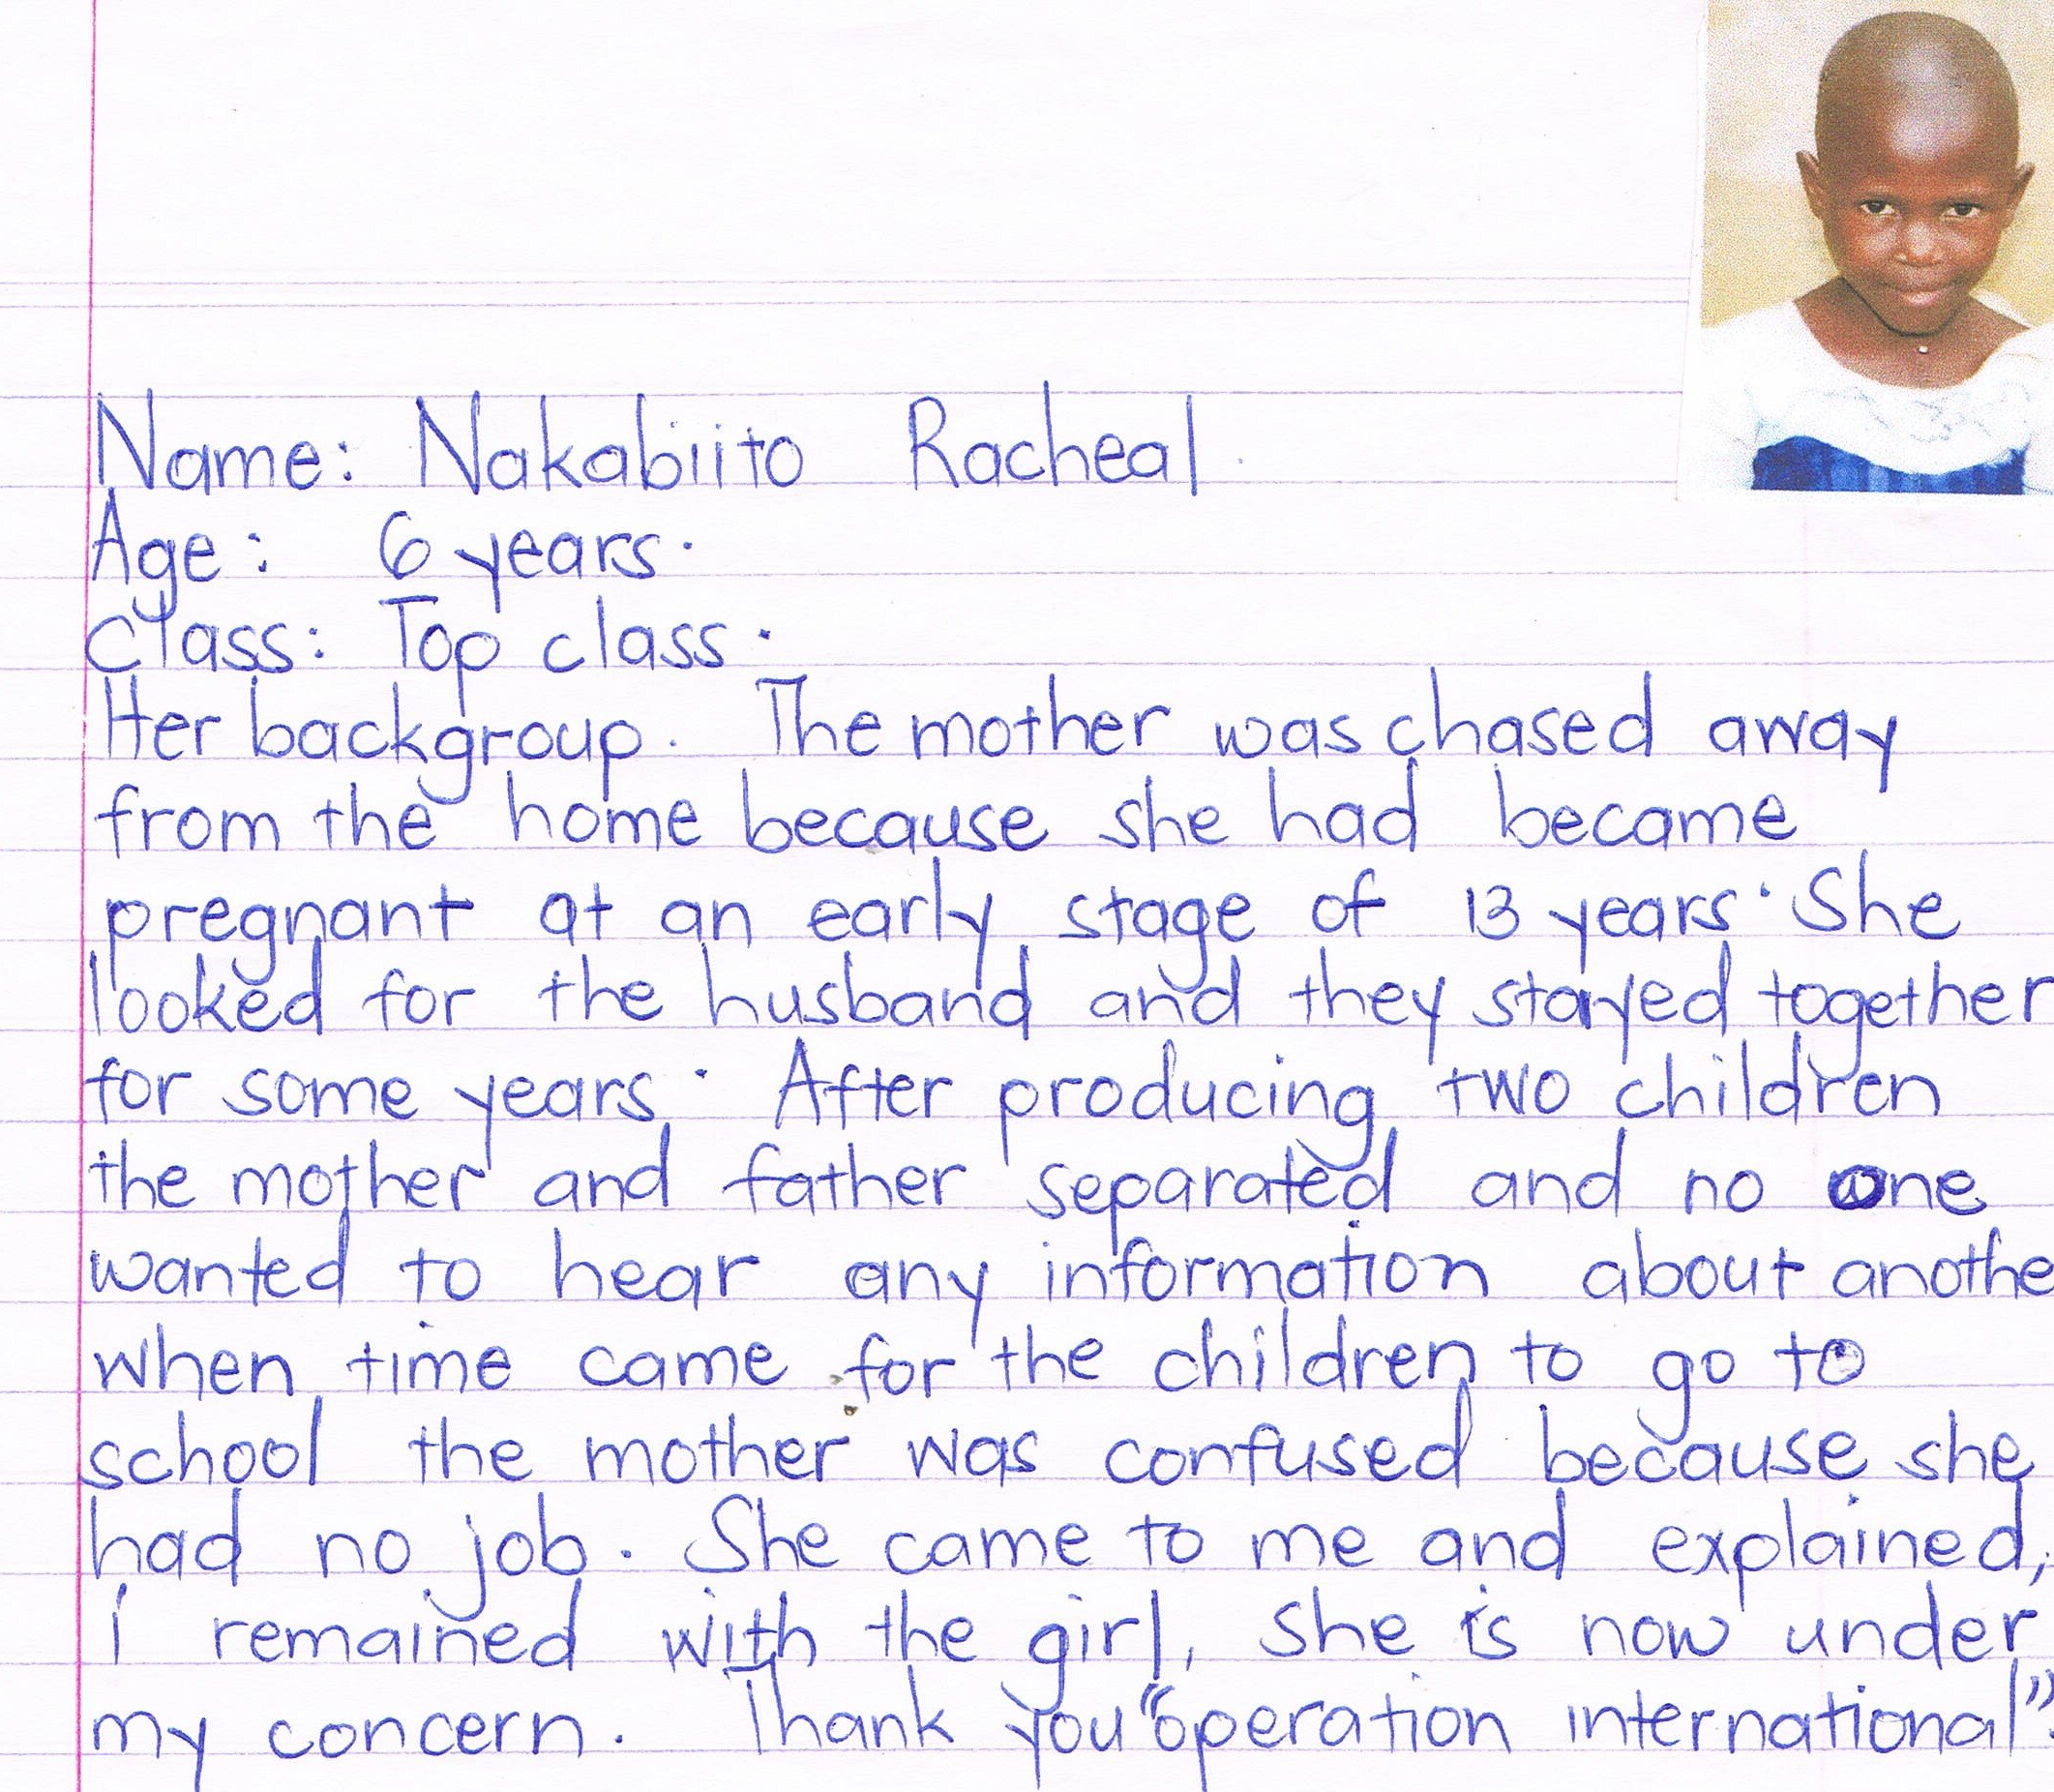 Name: Nakabiito Racheal.
Age: 6 years.
Class: Top class.
Her backgroup. The mother was chased away
from the home because she had became
pregnant at an early stage of 13 years. She
looked for the husband and they stayed together
for some years. After producing two children
the mother and father separated and no one
wanted to hear any information about anothe
when time came for the children to go to
school the mother was confused because she
had no job. She came to me and explained,
i remained with the girl, she is now under
my concern. Thank you "operation international".